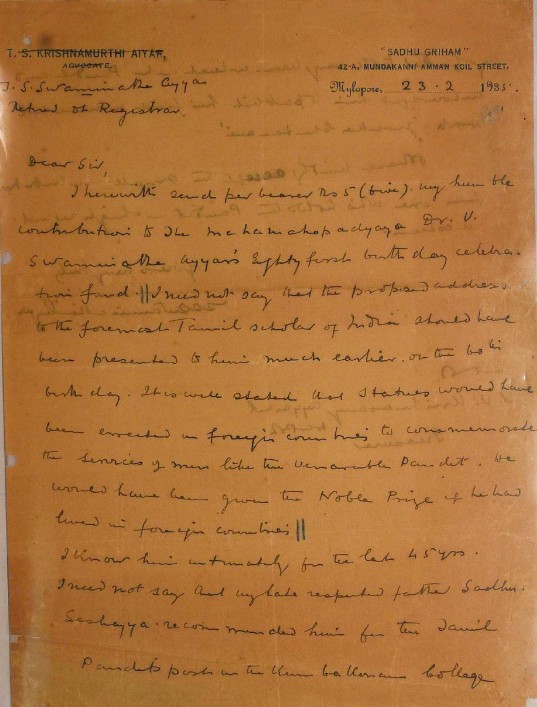 T. S. KRISHNAMURTHI AIYAR,
ADVOCATE.
"SADHU GRIHAM"
42-A, MUNDAKANNI AMMAN KOIL STREET,
Mylapore, 23·2 1935.
T. S. Swaminatha Ayyar
Retired Dt Registrar
Dear Sir,
I herewith send per bearer Rs 5 (five). my humble
contribution to the Mahamahopadyaya Dr. V.
Swaminatha Ayyar's Eighty first birth day celebra-
tion fund. || I need not say that the proposed address
to the foremost Tamil scholar of India should have
been presented to him much earlier. on the 60th
birth day. It is well stated that statues would have
been errected in foreign countries to commemorate
the services of men like the venerable Pandit. He
would have been given the Noble Prize if he had
lived in foreign countries ||
I know him intimately for the last 45 yrs.
I need not say that my late respected father Sadhu
Seshayya recommended him for the Tamil
Pandit's post in the Kumbakonam College